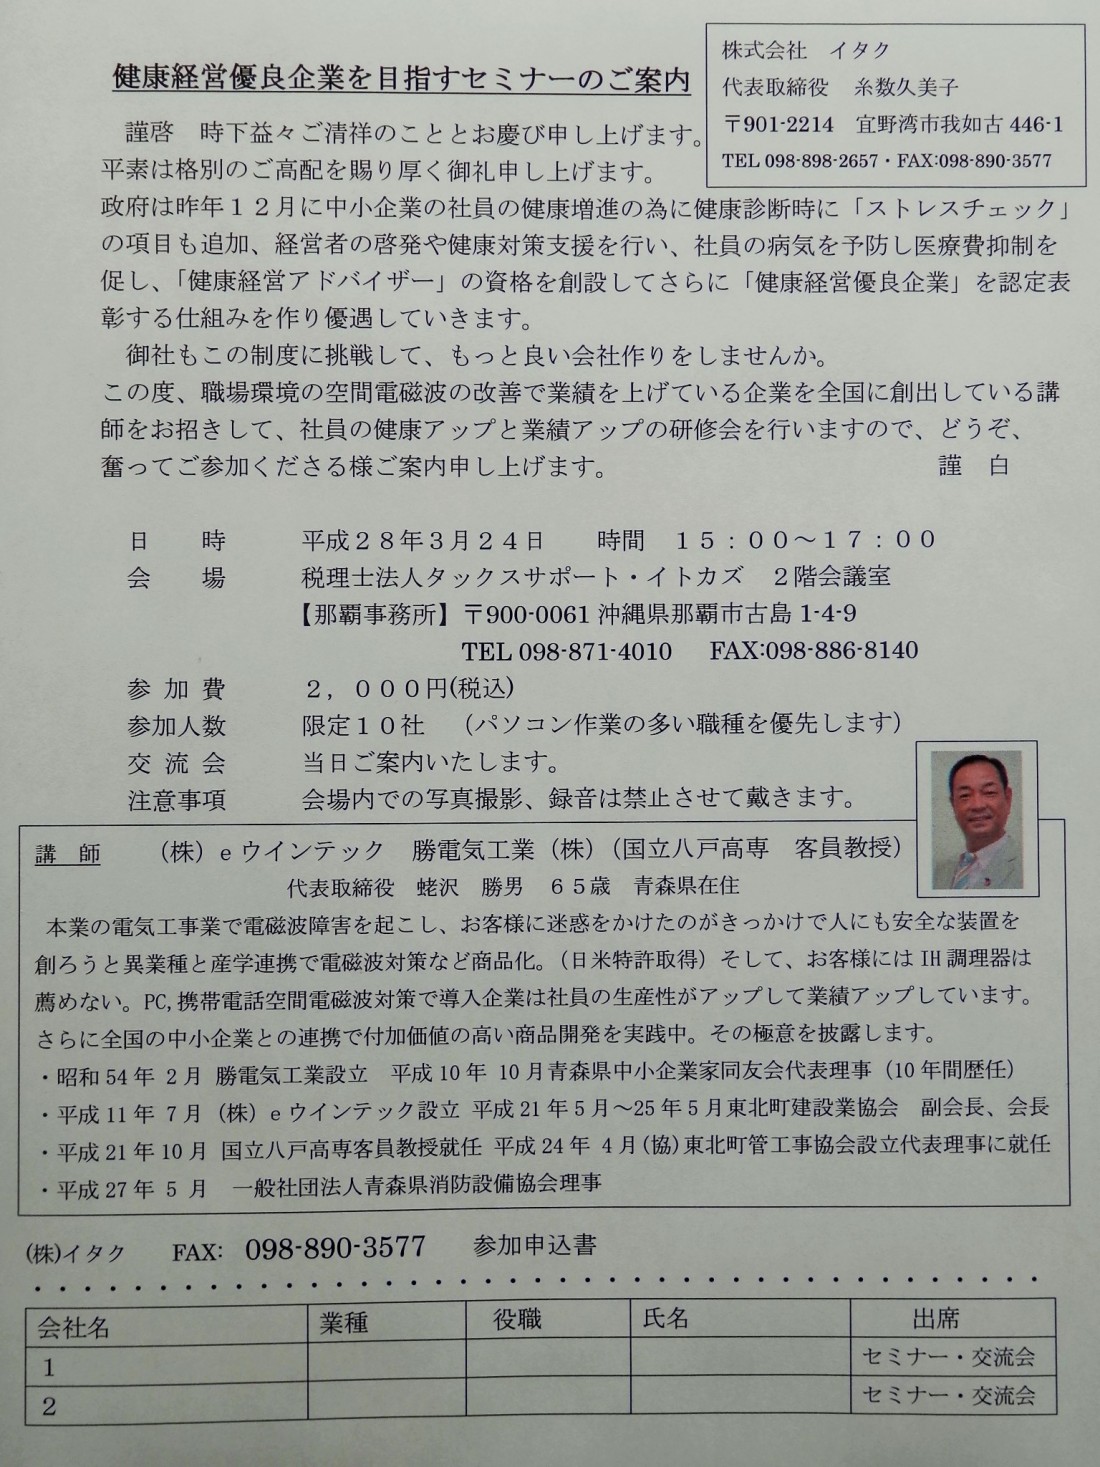 健康経営優良企業を目指すセミナーのご案内
株式会社　イタク
代表取締役　糸数久美子
〒901-2214　宜野湾市我如古 446-1
TEL 098-898-2657・FAX:098-890-3577
謹啓　時下益々ご清祥のこととお慶び申し上げます。
平素は格別のご高配を賜り厚く御礼申し上げます。
政府は昨年１２月に中小企業の社員の健康増進の為に健康診断時に「ストレスチェック」
の項目も追加、経営者の啓発や健康対策支援を行い、社員の病気を予防し医療費抑制を
促し、「健康経営アドバイザー」の資格を創設してさらに「健康経営優良企業」を認定表
彰する仕組みを作り優遇していきます。
御社もこの制度に挑戦して、もっと良い会社作りをしませんか。
この度、職場環境の空間電磁波の改善で業績を上げている企業を全国に創出している講
師をお招きして、社員の健康アップと業績アップの研修会を行いますので、どうぞ、
奮ってご参加くださる様ご案内申し上げます。　謹　白
日　　時　平成２８年３月２４日　時間　１５：００～１７：００
会　　場　税理士法人タックスサポート・イトカズ　２階会議室
【那覇事務所】〒900-0061 沖縄県那覇市古島 1-4-9
TEL 098-871-4010　FAX:098-886-8140
参 加 費　２，０００円(税込)
参加人数　限定１０社　（パソコン作業の多い職種を優先します）
交 流 会　当日ご案内いたします。
注意事項　会場内での写真撮影、録音は禁止させて戴きます。
講　師　（株）e ウインテック　勝電気工業（株）（国立八戸高専　客員教授）
代表取締役　蛯沢　勝男　６５歳　青森県在住
本業の電気工事業で電磁波障害を起こし、お客様に迷惑をかけたのがきっかけで人にも安全な装置を
創ろうと異業種と産学連携で電磁波対策など商品化。（日米特許取得）そして、お客様には IH 調理器は
薦めない。PC,携帯電話空間電磁波対策で導入企業は社員の生産性がアップして業績アップしています。
さらに全国の中小企業との連携で付加価値の高い商品開発を実践中。その極意を披露します。
・昭和 54 年 2 月 勝電気工業設立　平成 10 年 10 月青森県中小企業家同友会代表理事（10 年間歴任）
・平成 11 年 7 月（株）e ウインテック設立 平成 21 年 5 月～25 年 5 月東北町建設業協会　副会長、会長
・平成 21 年 10 月 国立八戸高専客員教授就任 平成 24 年 4 月(協)東北町管工事協会設立代表理事に就任
・平成 27 年 5 月　一般社団法人青森県消防設備協会理事
(株)イタク　FAX: 098-890-3577　参加申込書
会社名　業種　役職　氏名　出席
1　セミナー・交流会
2　セミナー・交流会